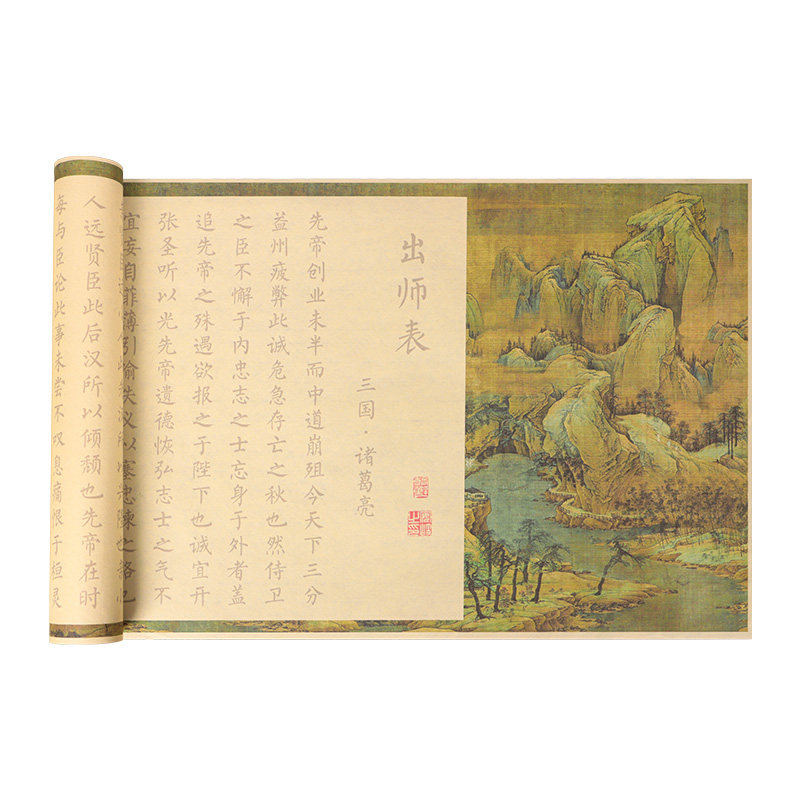 出师表
三国·诸葛亮
先帝创业未半而中道崩殂今天下三分
益州疲弊此诚危急存亡之秋也然侍卫
之臣不懈于内忠志之士忘身于外者盖
追先帝之殊遇欲报之于陛下也诚宜开
张圣听以光先帝遗德恢弘志士之气不
宜妄自菲薄引喻失义以塞忠谏之路也
人远贤臣此后汉所以倾颓也先帝在时
每与臣论此事未尝不叹息痛恨于桓灵